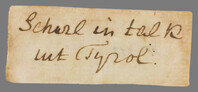 Schorl in talk
aut Tyrol.